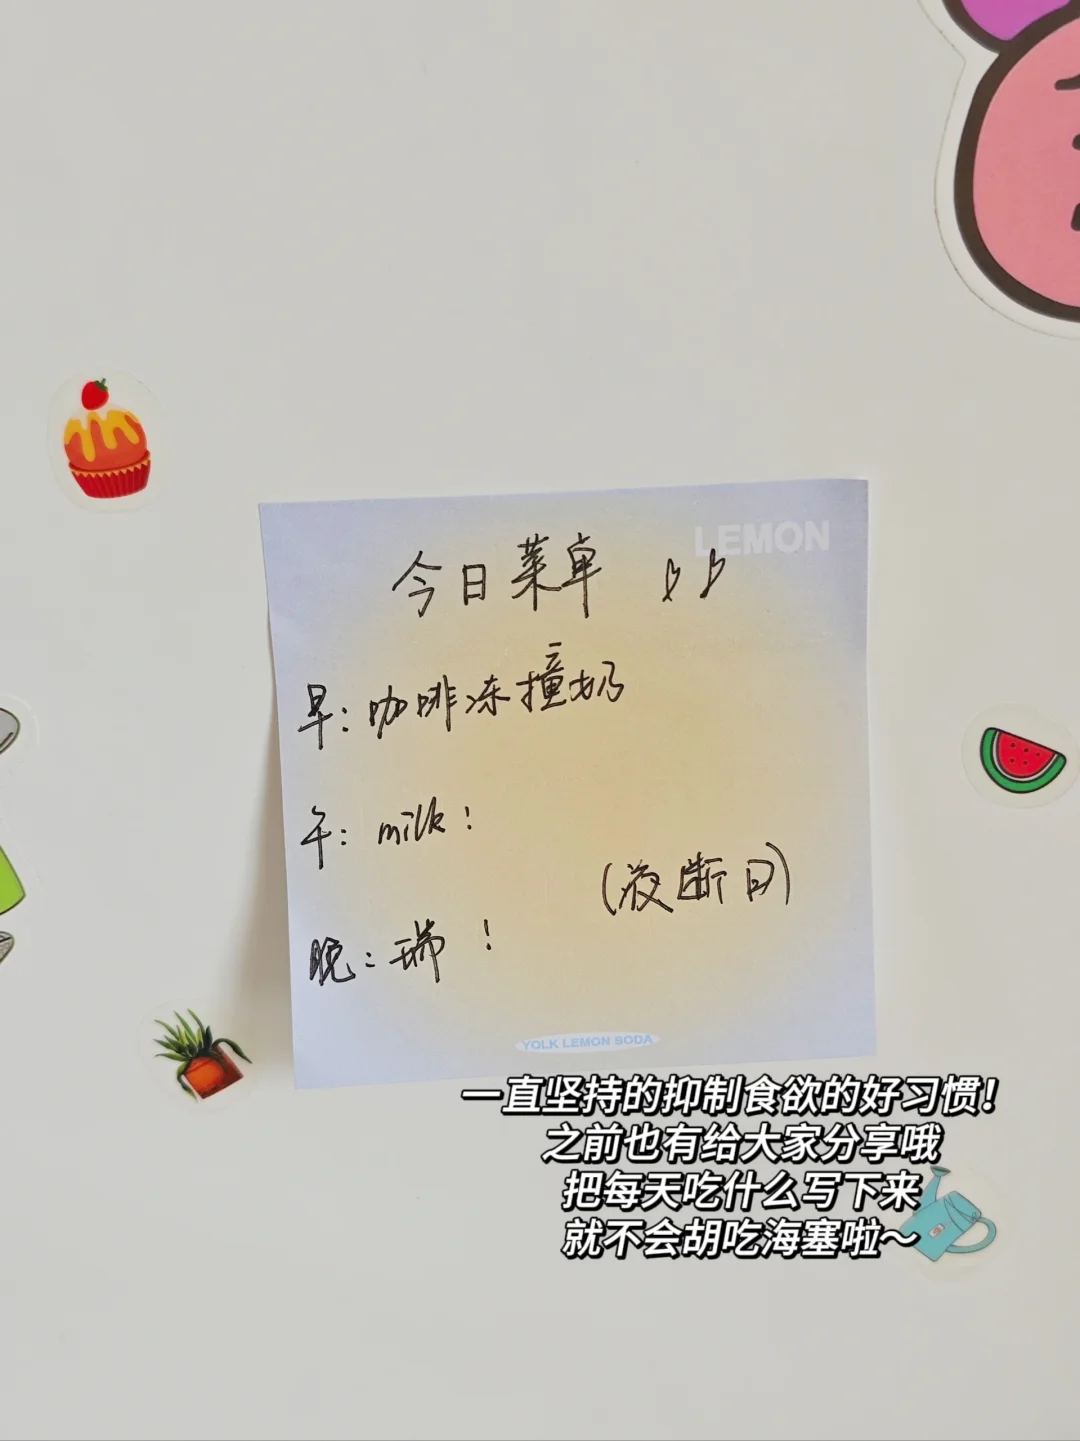 LEMON
今日菜单
早：咖啡冻撞奶
午：milk！
（液断日）
晚：瑞！
YOLK LEMON SODA
一直坚持的抑制食欲的好习惯！
之前也有给大家分享哦
把每天吃什么写下来
就不会胡吃海塞啦～